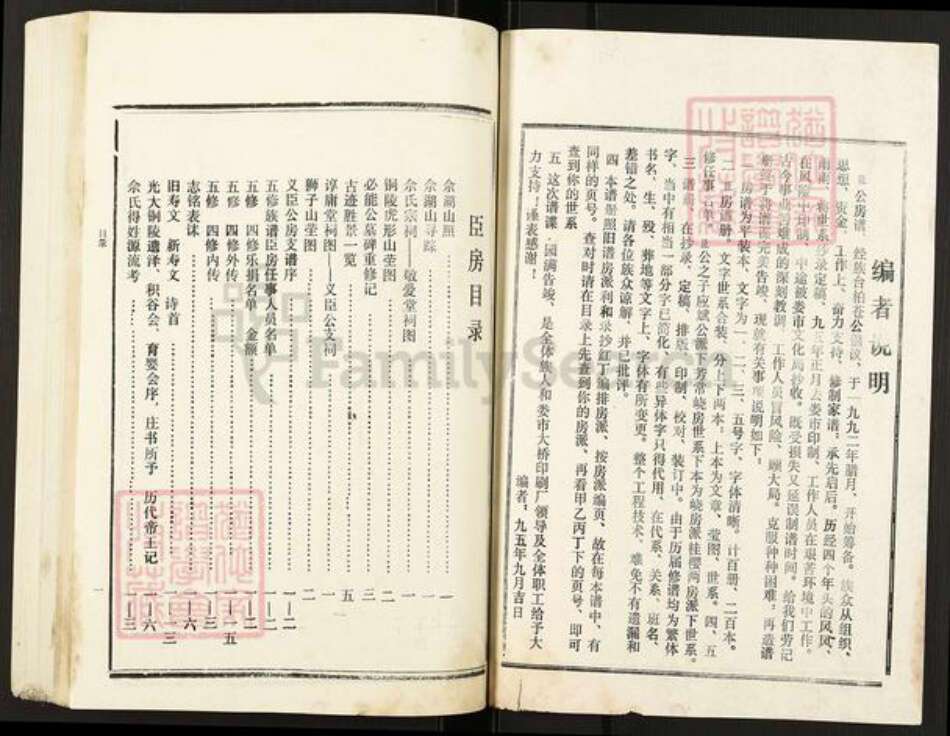 编者说明
公房谱、经族台柏苍公倡议、于一九九二年腊月、开始筹备。族众从组织、
思想、资金、工作上、奋力支持、修制家谱。承先启后。历经四个年头的风风、
雨雨、将世系抄录定稿、九 年正月去娄市印制、工作人员在艰苦环境中工作。
在风险中印制、中途被娄市文化局抄收。既受损失又延误制谱时间。给我们劳记
古今事业 的深刻教训、工作人员冒风险、顾大局。克服种种困难，再造谱
终于将谱牒完美告竣、现就有关事项说明如下。
房谱为平装本、文字为一、二、三、五号字、字体清晰。计百册、二百本。
二、 房谱册、文字世系合装、分上下两本，上本为文章、茔图、世系。四、五
修任事 名单、 公之子应斌公派下芳常峣房世系下本为峣房派桂樱两房派下世系。
三、谱 在抄录、定稿、排版、印制、校对、装订中。由于历届修谱均为繁体
字、当中有相当一部分字已简化、有些异体字只得代用、在代系、关系、班名、
书名、生、殁、葬地等文字上、字体有所变更。整个工程技术、难免不有遗漏和
差错之处。请各位族众谅解、并已批评。
四、本谱册照旧谱房派利和录抄红丁编排房派、按房派编页、故在每本谱中、有
同样的页号。查对时请在目录上先查到你的房派、再看甲乙丙丁下的页号、即可
查到你的世系
五、这次谱牒、圆满告竣、是全体族人和娄市大桥印刷厂领导及全体职工给予大
力支持！谨表感谢！
编者，九五年九月吉日
臣房目录
佘湖山照 一
佘湖山寻踪 一
佘氏宗祠——敬爱堂祠图 一
铜陵虎形山茔图 二
必能公墓碑重修记 三
古迹胜景一览 五
谆庸堂祠图——义臣公支祠 一
狮子山茔图 二
义臣公房支谱序 一—二
五修族谱臣房任事人员名单 一—二
五修 四修乐捐名单 金额 一—二
五修 四修外传 一—二五
五修 四修内传 一—三
志铭表诔 一—六
旧寿文 新寿文 诗首 一—一三
光大铜陵遗泽、积谷会、育婴会序，庄书所予 历代帝王记 一—六
佘氏得姓源流考 一—三
目录
一
FamilySearch